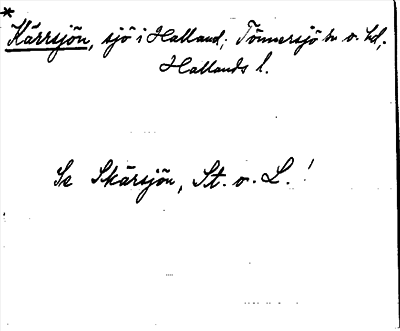 *
Kärrsjön, sjö i Halland; Tönnersjö sn o. hd,
Hallands l.
Se Skärsjön, St. o. L.!